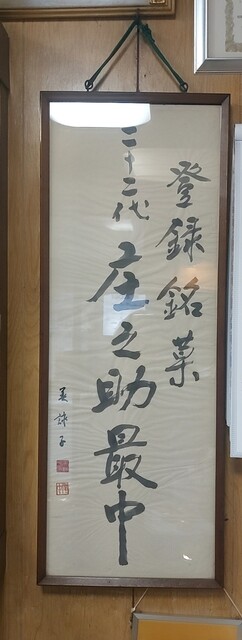 登録銘菓
二十二代
庄之助最中